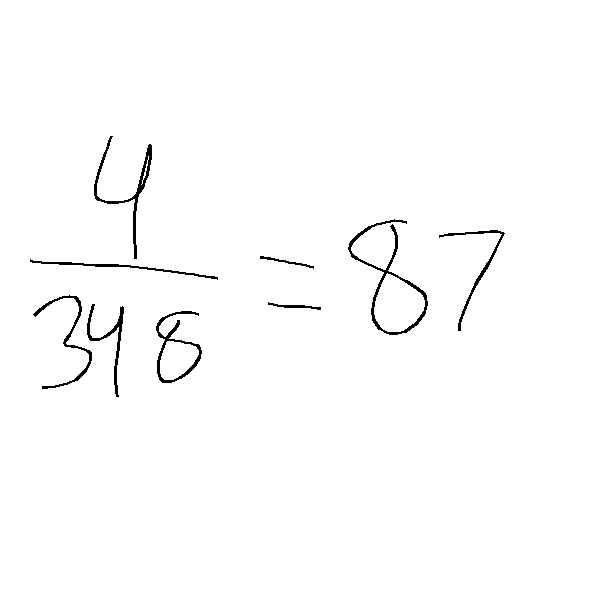 4
348 = 87